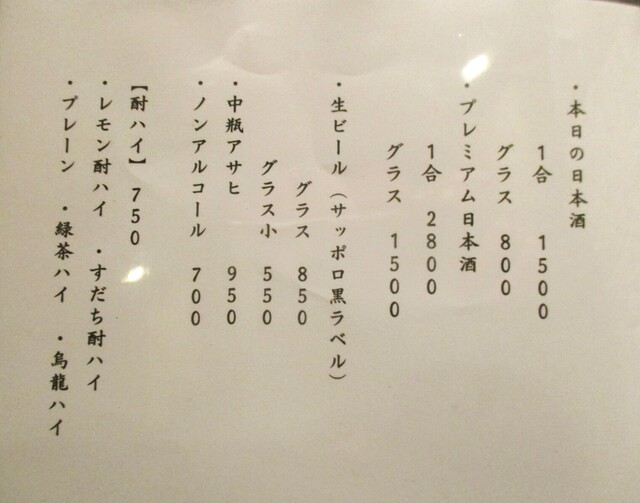 ・本日の日本酒
1合 1500
グラス 800
・プレミアム日本酒
1合 2800
グラス 1500
・生ビール（サッポロ黒ラベル）
グラス 850
グラス小 550
・中瓶アサヒ 950
・ノンアルコール 700
【酎ハイ】 750
・レモン酎ハイ ・すだち酎ハイ
・プレーン ・緑茶ハイ ・烏龍ハイ